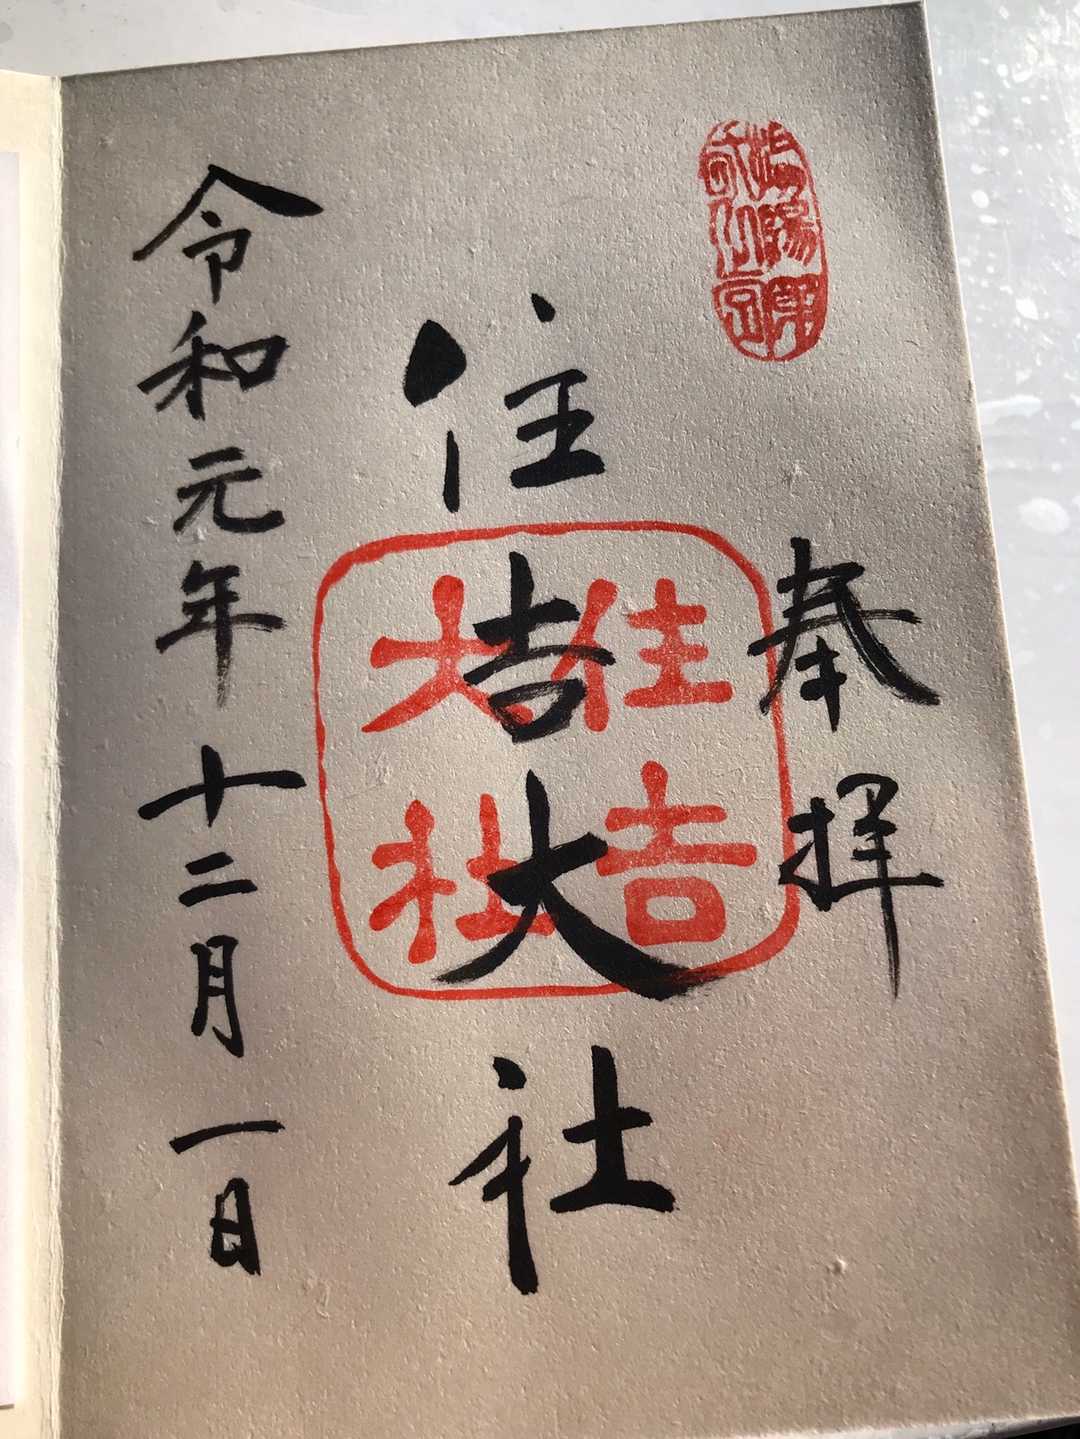 奉拝
住吉大社
住吉
大社
令和元年十二月一日